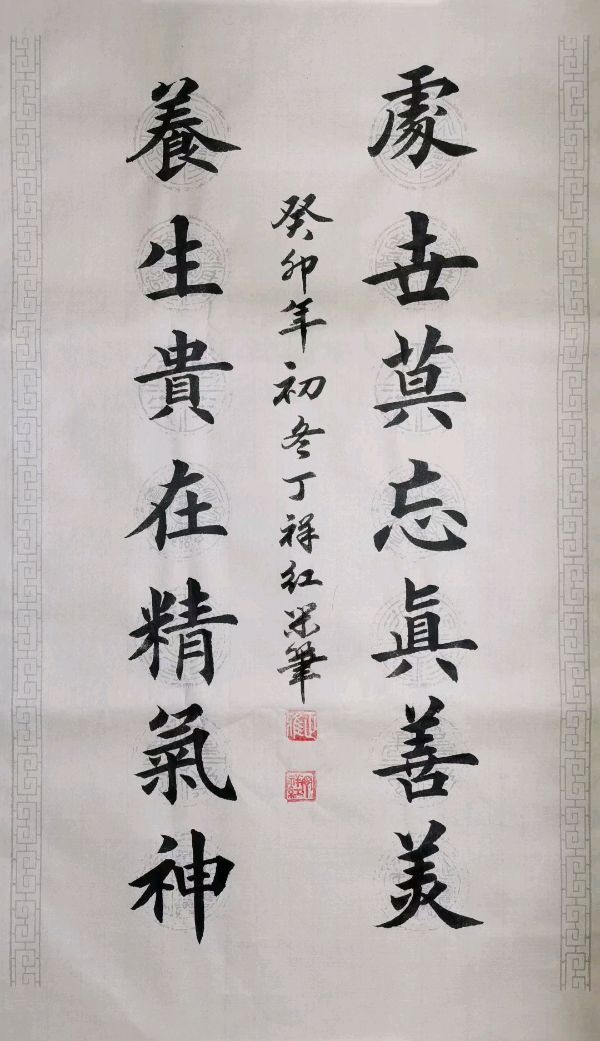 處世莫忘眞善美
養生貴在精氣神
癸卯年初冬丁祥红
筆